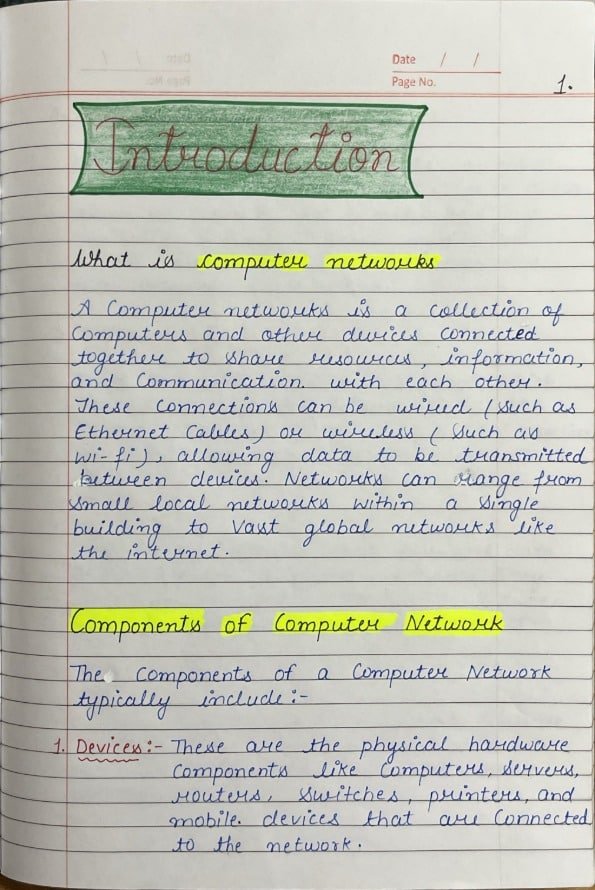 Date / /
Page No.
1.
Introduction
What is computer networks
A Computer networks is a collection of
Computers and other devices Connected
together to share resources, information,
and Communication. with each other.
These Connections can be wired (such as
Ethernet Cables) or wireless (such as
wi-fi), allowing data to be transmitted
between devices. Networks can range from
small local networks within a single
building to Vast global networks like
the internet.
Components of Computer Network
The Components of a Computer Network
typically include:-
1. Devices:- These are the physical hardware
Components like Computers, servers,
routers, switches, printers, and
mobile. devices that are Connected
to the network.